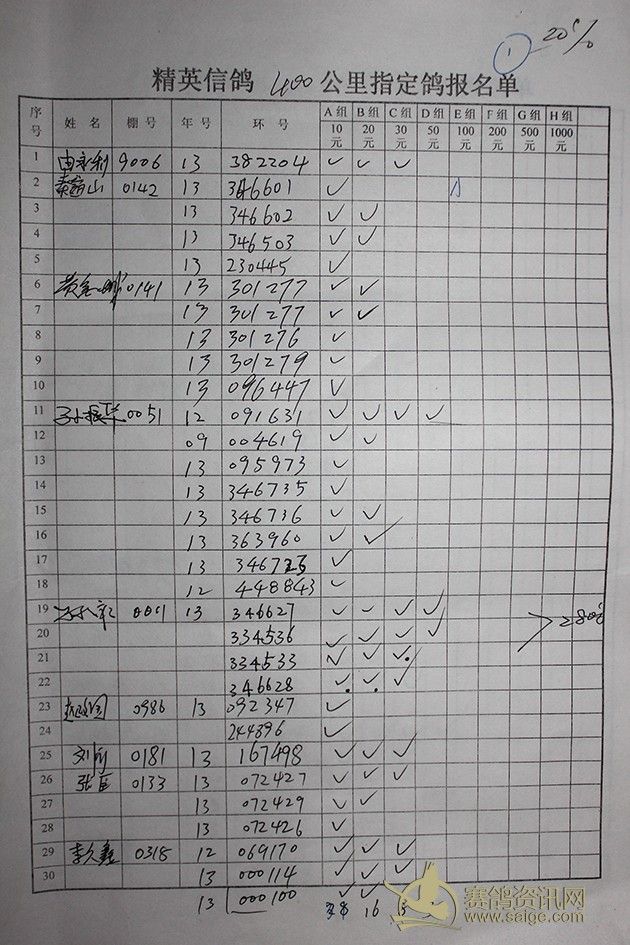 ① 20%
精英信鸽 400 公里指定鸽报名单
序号 姓名 棚号 年号 环号 A组10元 B组20元 C组30元 D组50元 E组100元 F组200元 G组500元 H组1000元
1 由永利 9006 13 382204 ✓ ✓ ✓
2 山 0142 13 346601 ✓
3 13 346602 ✓ ✓
4 13 346503 ✓ ✓
5 13 230445 ✓
6 黄金 0141 13 301277 ✓ ✓
7 13 301277 ✓ ✓
8 13 301276 ✓
9 13 301279 ✓
10 13 096447 ✓
11 孙振华 0051 12 091631 ✓ ✓ ✓ ✓
12 09 004619 ✓ ✓
13 13 095973 ✓
14 13 346735 ✓
15 13 346736 ✓ ✓
16 13 363960 ✓ ✓
17 13 ✓
18 12 448843 ✓
19 13 346627 ✓ ✓ ✓ ✓
20 334536 ✓ ✓ ✓ ✓
21 334533 ✓ ✓ ✓
22 346628 ✓ ✓ ✓
23 0986 13 092347 ✓
24 244896 ✓
25 刘 0181 13 167498 ✓ ✓ ✓
26 张臣 0133 13 072427 ✓ ✓ ✓
27 13 072429 ✓ ✓
28 13 072426 ✓
29 李久鑫 0318 12 069170 ✓ ✓ ✓
30 13 000114 ✓ ✓ ✓
13 000100 ✓ ✓
16
赛鸽资讯网
www.saige.com